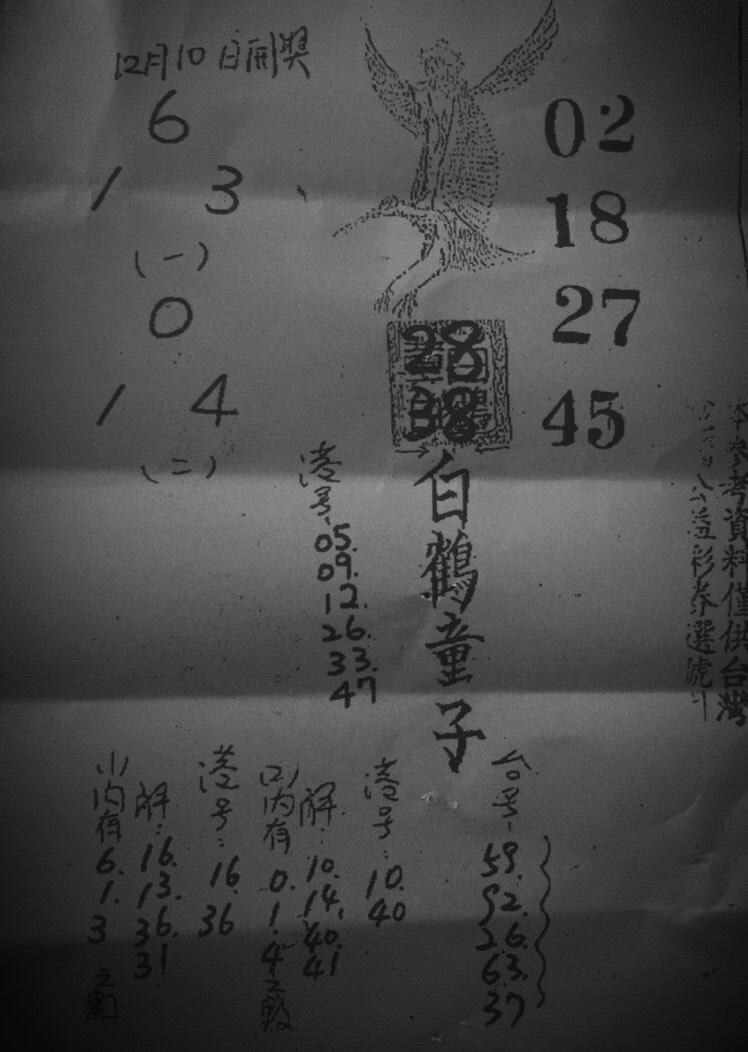 12月10日開獎
6
1 3
(一)
0
1 4
(二)
02
18
27
45
28
38
白鶴童子
港号:
05.
09.
12.
26.
33.
47
本參考資料僅供台灣
公益彩券選號
台号:
59.
92.
26.
63.
37
港号:
10.
40
解:
10.
14.
40.
41
(2)内有
0.
1.
4之數
港号:
16.
36
解:
16.
13.
36.
31
(1)内有
6.
1.
3之數